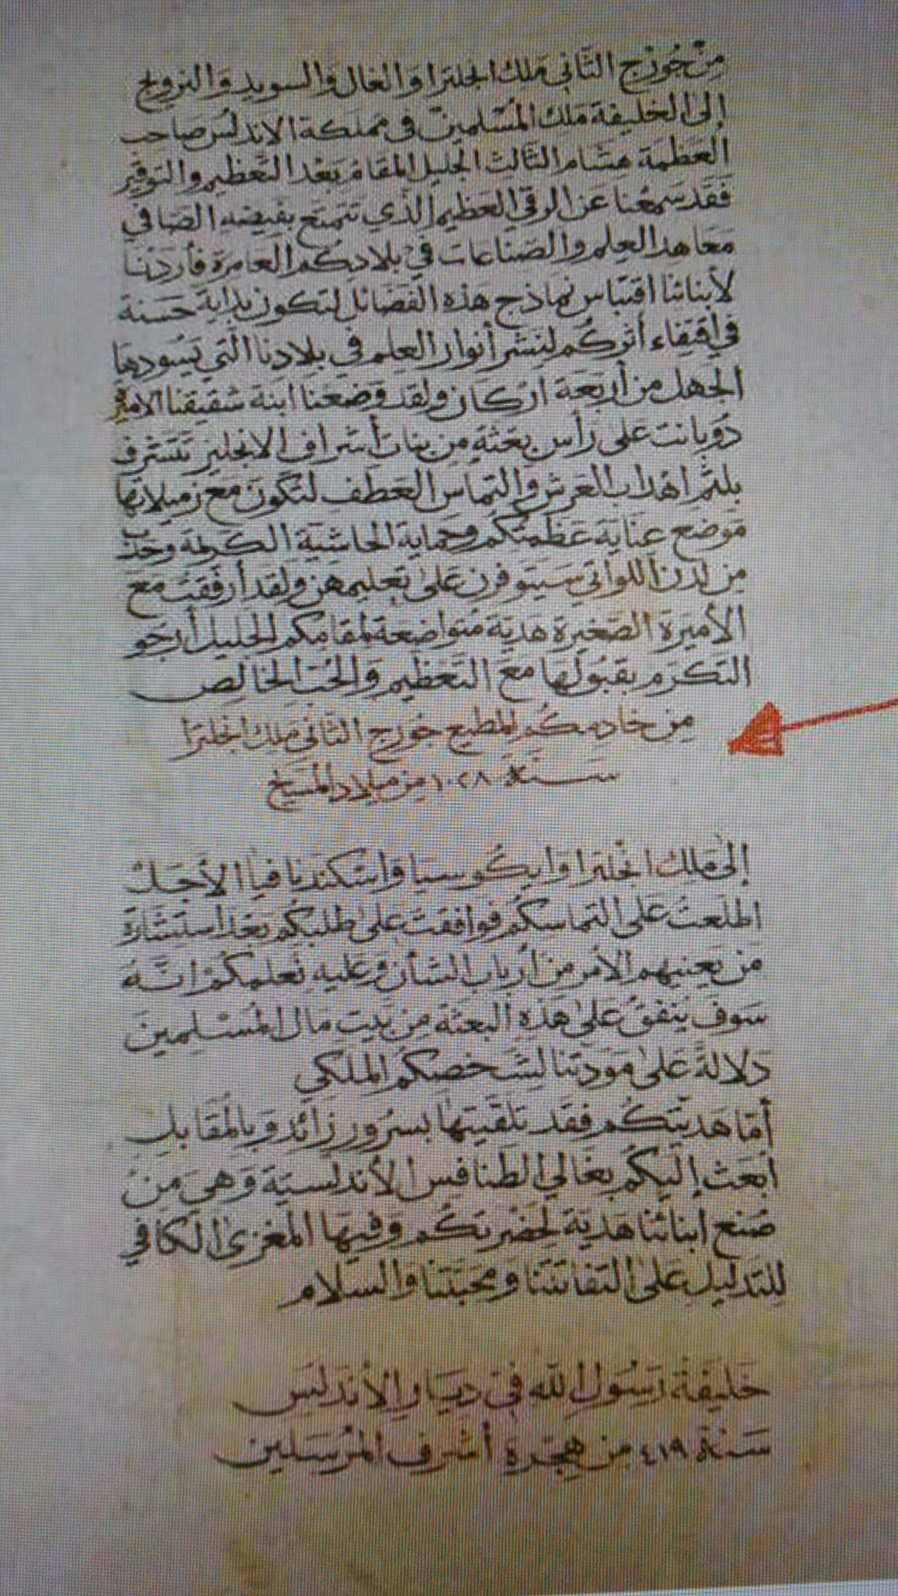 مِنْ جُورْج الثَّاني مَلِك انجلترا وَالغال وَالسويد وَالنرويج
إلى الخليفة مَلِك المُسْلمينَ في مملكة الاندلُس صَاحب
العَظمة هشام الثالث الجليل المقام بَعْد التَّعظيم والتوقير
فَقَد سَمِعْنا عَن الرقي العَظيم الذي تتمتع بفيضه الصَافي
مَعَاهد العِلم والصناعات في بلادكم العامرة فأردنا
لأبنائنا اقتباس نماذج هذه الفضائل لتكون بداية حَسَنة
في اقتفاء أثركُم لنشر أنوار العِلم في بلادنا التي يَسُودهَا
الجهل من أربَعَة اركان ولقد وَضعنا ابنة شقيقنا الاميرة
دُوبانت على رَأس بعثة من بنات أشراف الانجليز تتشرف
بلثم اهداب العَرش والتماس العَطف لتكون مع زميلاتها
مَوضع عناية عَظمتكم وحماية الحاشية الكريمة وحدب
من لدن اللواتي سيتوفرن على تعليمهن ولقد أرفقت مع
الأميرة الصَغيرة هدية مُتواضعة لمقامكم الجليل أرجو
التكرم بقبولها مَعَ التعظيم وَالحُب الخالِص
مِن خادِمكُم المطيع جُورج الثاني مَلِك انجلترا
سَنَة ١٠٢٨ من ميلاد المَسيح
إلى مَلِك انجلترا وَايكوسيا وَاسكندنافيا الأجَل
اطلعتُ على التماسكم فوافقتُ على طلبكم بَعْد استشارَة
مَن يَعنيهم الأمر من أرباب الشأن وَعَليه نعلمكُم انَّهُ
سَوفَ ينفقُ عَلى هَذه البعثة مِن بَيت مَال المُسْلِمينَ
دَلالةً عَلى مَوَدتنا لِشَخصكم الملكي
أمّا هَديتكُم فقد تلقيتها بسرُور زائد وَبالمُقَابل
ابعَث إليكُم بغَالي الطنافس الأندلسيّة وَهيَ مِن
صُنع ابنائنا هَديّة لِحَضْرتكُم وَفيهَا المَغزى الكافي
لِلتَدليل عَلى التفاتتنا وَمحَبتنا والسَلام
خَليفَة رَسُول الله في ديَار الأندلس
سَنة ٤١٩ من هِجْرة أشرف المُرسَلين